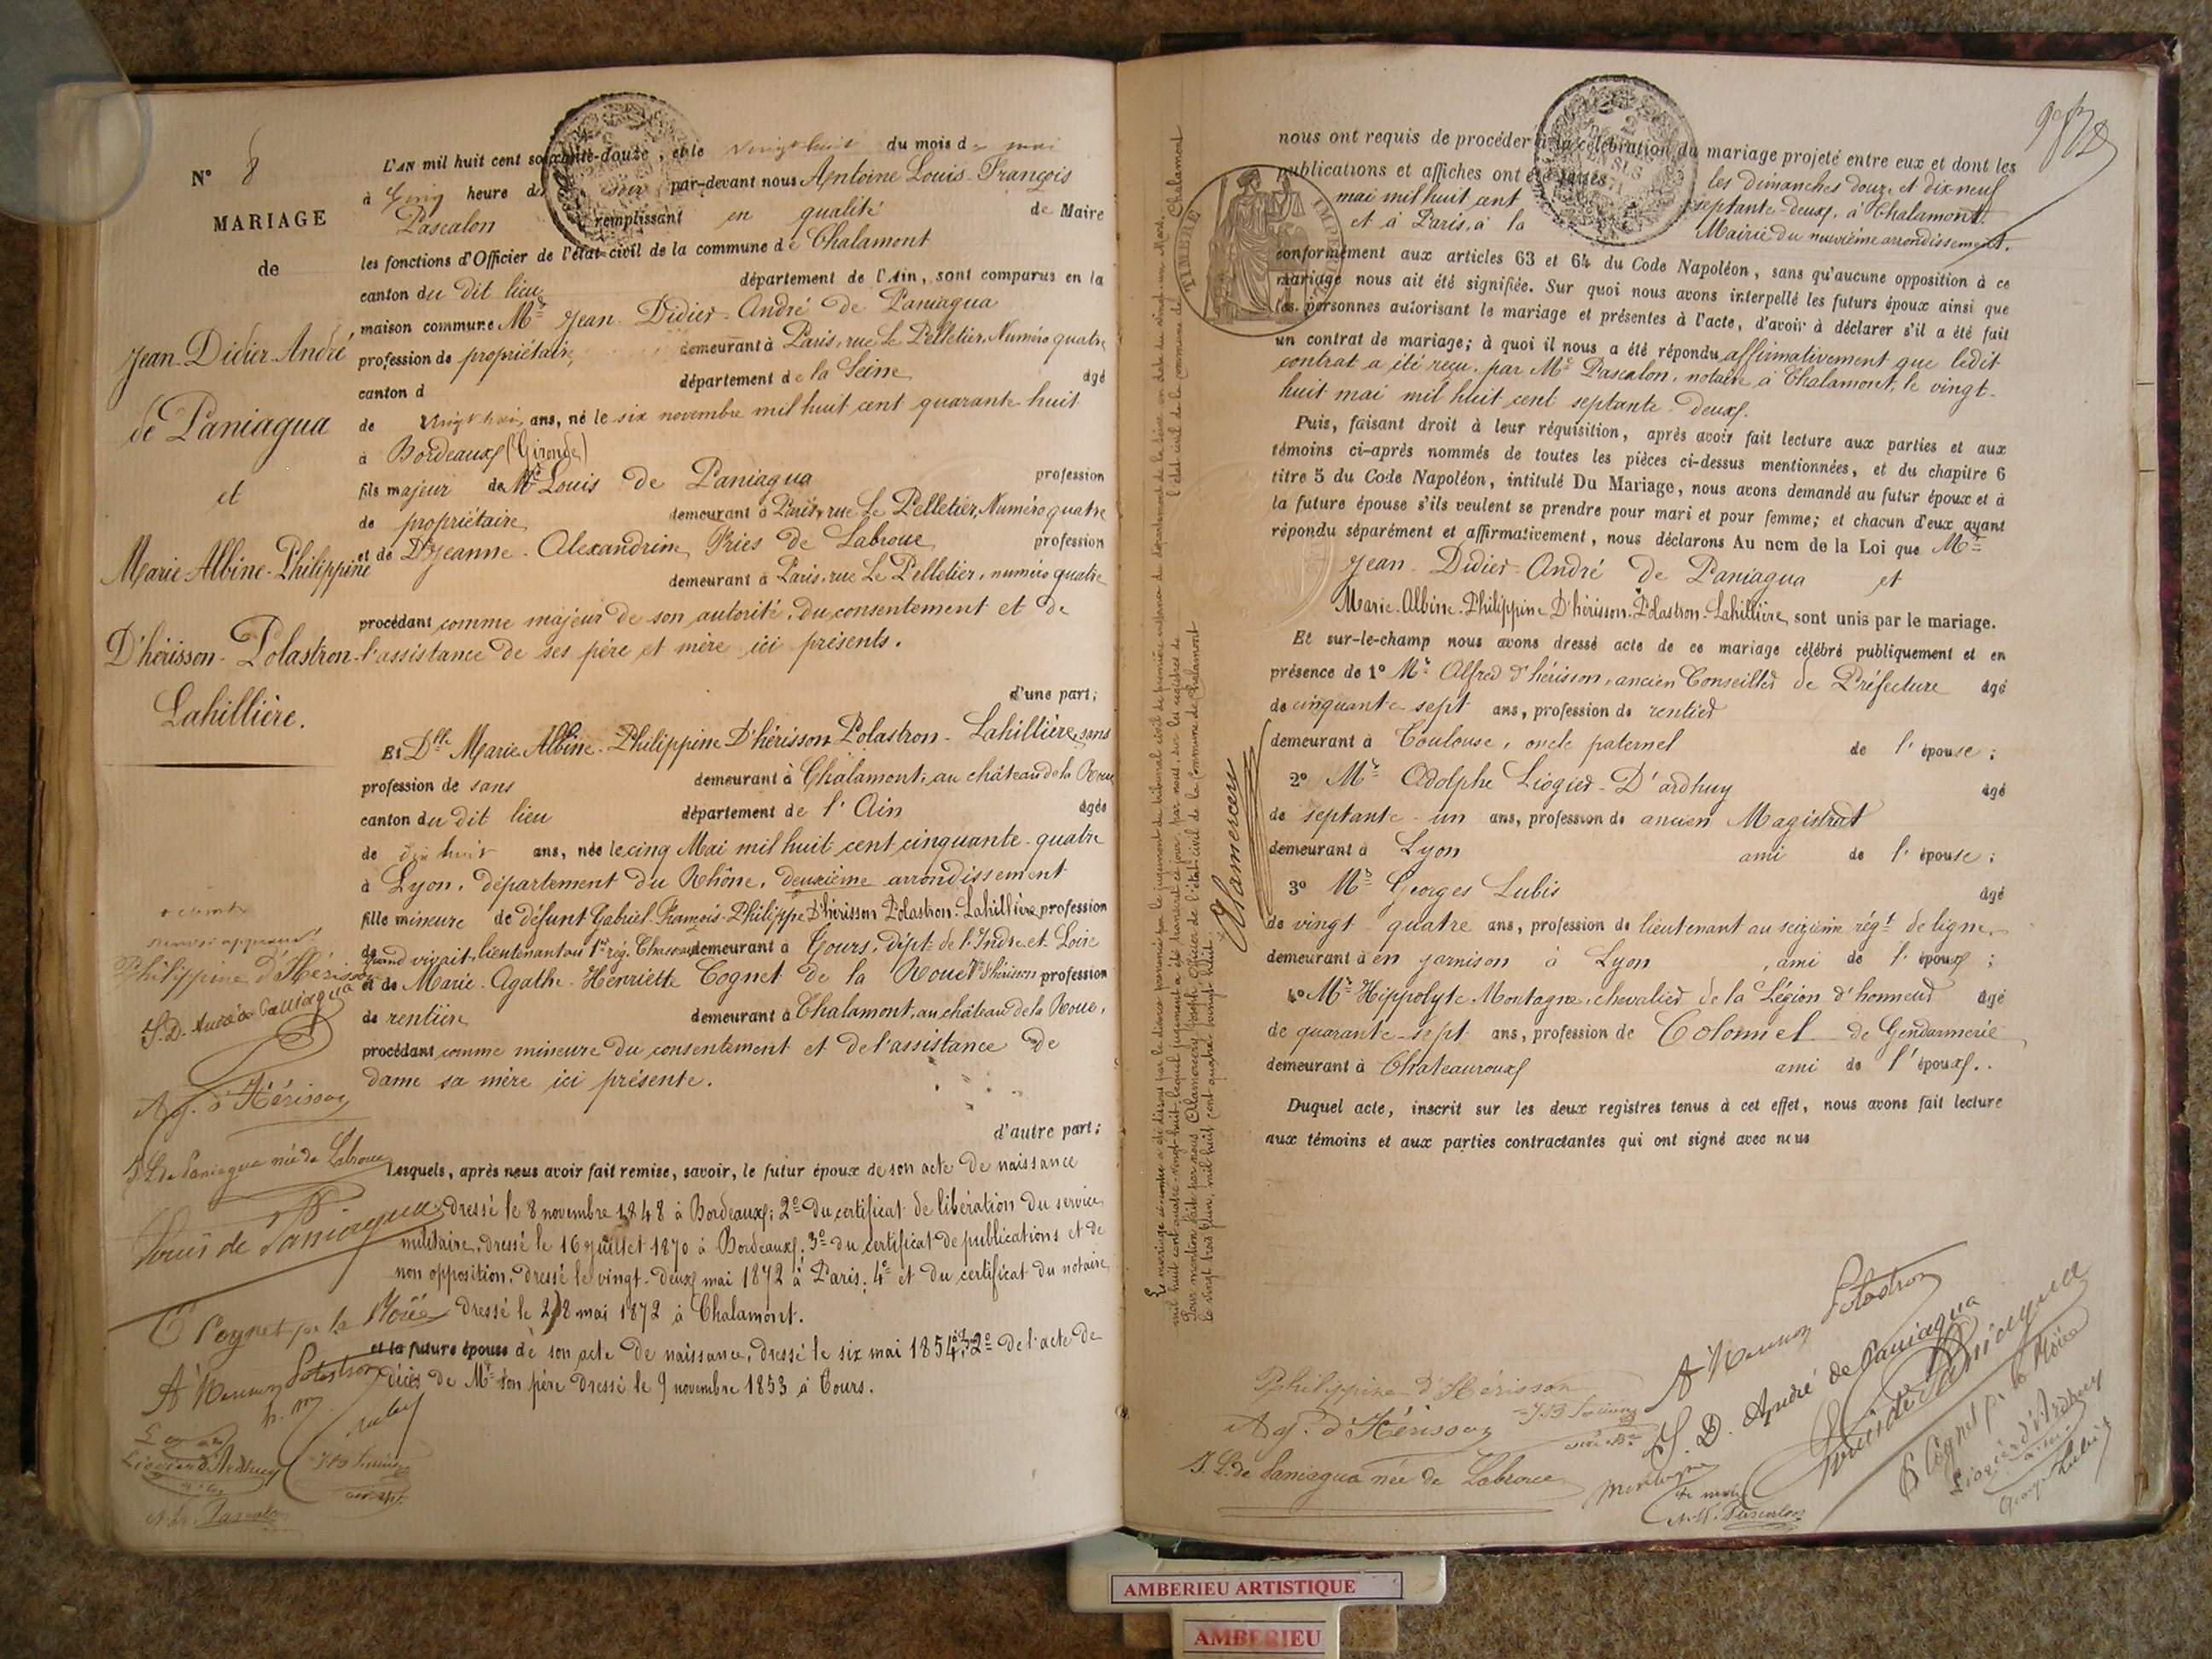 N° 8
MARIAGE
de
Jean-Didier-André
de Paniagua
et
Marie-Albine-Philippine
D'hérisson-Polastron-
Lahillière.
L'AN mil huit cent soixante-douze, et le vingt huit du mois de mai
à cinq heure du soir par-devant nous Antoine Louis-François
Pascalon remplissant en qualité de Maire
les fonctions d'Officier de l'état-civil de la commune de Chalamont
canton du dit lieu département de l'Ain, sont comparus en la
maison commune Mr Jean-Didier-André de Paniagua
profession de propriétaire, demeurant à Paris, rue Le Pelletier, Numéro quatre
canton d département de la Seine âgé
de vingt trois ans, né le six novembre mil huit cent quarante huit
à Bordeaux (Gironde)
fils majeur de Mr Louis de Paniagua profession
de propriétaire demeurant à Paris, rue Le Pelletier, Numéro quatre
et de De Jeanne-Alexandrine Pries de Labroue profession
demeurant à Paris, rue Le Pelletier, numéro quatre
procédant comme majeur de son autorité, du consentement et de
l'assistance de ses père et mère ici présents.
d'une part;
Et Dlle Marie Albine-Philippine D'hérisson Polastron-Lahillière, sans
profession de sans demeurant à Chalamont, au château de la Roue
canton du dit lieu département de l'Ain âgée
de dix huit ans, née le cinq Mai mil huit cent cinquante-quatre
à Lyon, département du Rhône, deuxième arrondissement
fille mineure de défunt Gabriel-François-Philippe D'hérisson Polastron-Lahillière profession
de quand vivait, lieutenant au 1er rég. Chasseurs demeurant à Tours, dépt de l'Indre et Loire
et de Marie-Agathe-Henriette Cognet de la Roue Ve d'hérisson profession
de rentière demeurant à Chalamont, au château de la Roue,
procédant comme mineure du consentement et de l'assistance de
dame sa mère ici présente.
d'autre part;
Lesquels, après nous avoir fait remise, savoir, le futur époux de son acte de naissance
dressé le 8 novembre 1848 à Bordeaux; 2° du certificat de libération du service
militaire, dressé le 16 juillet 1870 à Bordeaux. 3° du certificat de publications et de
non opposition, dressé le vingt-deux mai 1872 à Paris; 4° et du certificat du notaire
dressé le 28 mai 1872 à Chalamont.
et la future épouse de son acte de naissance, dressé le six mai 1854, 2° de l'acte de
décès de Mr son père dressé le 9 novembre 1853 à Tours.
Philippine d'Hérisson
J. D. André de Paniagua
Ag. d'Hérisson
J. L. de Paniagua née de Labroue
Louis de Paniagua
C Cognet de la Roüe
Polastron
Liogier d'Ardhuy
Pascalon
nous ont requis de procéder à la célébration du mariage projeté entre eux et dont les
publications et affiches ont été faites les dimanches douze et dix-neuf
mai mil huit cent septante-deux, à Chalamont.
et à Paris, à la Mairie du neuvième arrondissement.
conformément aux articles 63 et 64 du Code Napoléon, sans qu'aucune opposition à ce
mariage nous ait été signifiée. Sur quoi nous avons interpellé les futurs époux ainsi que
les personnes autorisant le mariage et présentes à l'acte, d'avoir à déclarer s'il a été fait
un contrat de mariage; à quoi il nous a été répondu affirmativement que ledit
contrat a été reçu, par Me Pascalon, notaire à Chalamont, le vingt-
huit mai mil huit cent septante-deux.
Puis, faisant droit à leur réquisition, après avoir fait lecture aux parties et aux
témoins ci-après nommés de toutes les pièces ci-dessus mentionnées, et du chapitre 6
titre 5 du Code Napoléon, intitulé Du Mariage, nous avons demandé au futur époux et à
la future épouse s'ils veulent se prendre pour mari et pour femme; et chacun d'eux ayant
répondu séparément et affirmativement, nous déclarons Au nom de la Loi que Mr
Jean-Didier-André de Paniagua et
Marie-Albine-Philippine D'hérisson-Polastron-Lahillière, sont unis par le mariage.
Et sur-le-champ nous avons dressé acte de ce mariage célébré publiquement et en
présence de 1° Mr Alfred d'hérisson, ancien Conseiller de Préfecture âgé
de cinquante sept ans, profession de rentier
demeurant à Toulouse, oncle paternel de l'épouse;
2° Mr Adolphe Liogier-D'ardhuy âgé
de septante-un ans, profession de ancien Magistrat
demeurant à Lyon ami de l'épouse;
3° Mr Georges Lubis âgé
de vingt-quatre ans, profession de lieutenant au seizième régt de ligne
demeurant à en garnison à Lyon, ami de l'époux;
4° Mr Hippolyte Montagne, chevalier de la Légion d'honneur âgé
de quarante-sept ans, profession de Colonnel de Gendarmerie
demeurant à Chateauroux ami de l'époux.
Duquel acte, inscrit sur les deux registres tenus à cet effet, nous avons fait lecture
aux témoins et aux parties contractantes qui ont signé avec nous
TIMBRE IMPÉ
Le mariage ci-contre a été dissous par le divorce prononcé par le jugement du tribunal civil de première instance du département de la Seine en date du vingt-un Mars
mil huit cent quatre-vingt-huit, lequel jugement a été transcrit ce jour, par nous, sur les registres de l'état civil de la Commune de Chalamont
Pour mention faite par nous, Alamercery Joseph, Officier de l'état civil de la Commune de Chalamont
le vingt trois Juin, mil huit cent quatre-vingt-huit.
Alamercery
Philippine d'Hérisson
Ag. d'Hérisson
J. L. de Paniagua née de Labroue
Polastron
J. D. André de Paniagua
Louis de Paniagua
C Cognet de la Roüe
Liogier d'Ardhuy
Georges Lubis
Montagne
Pascalon
AMBERIEU ARTISTIQUE
AMBERIEU